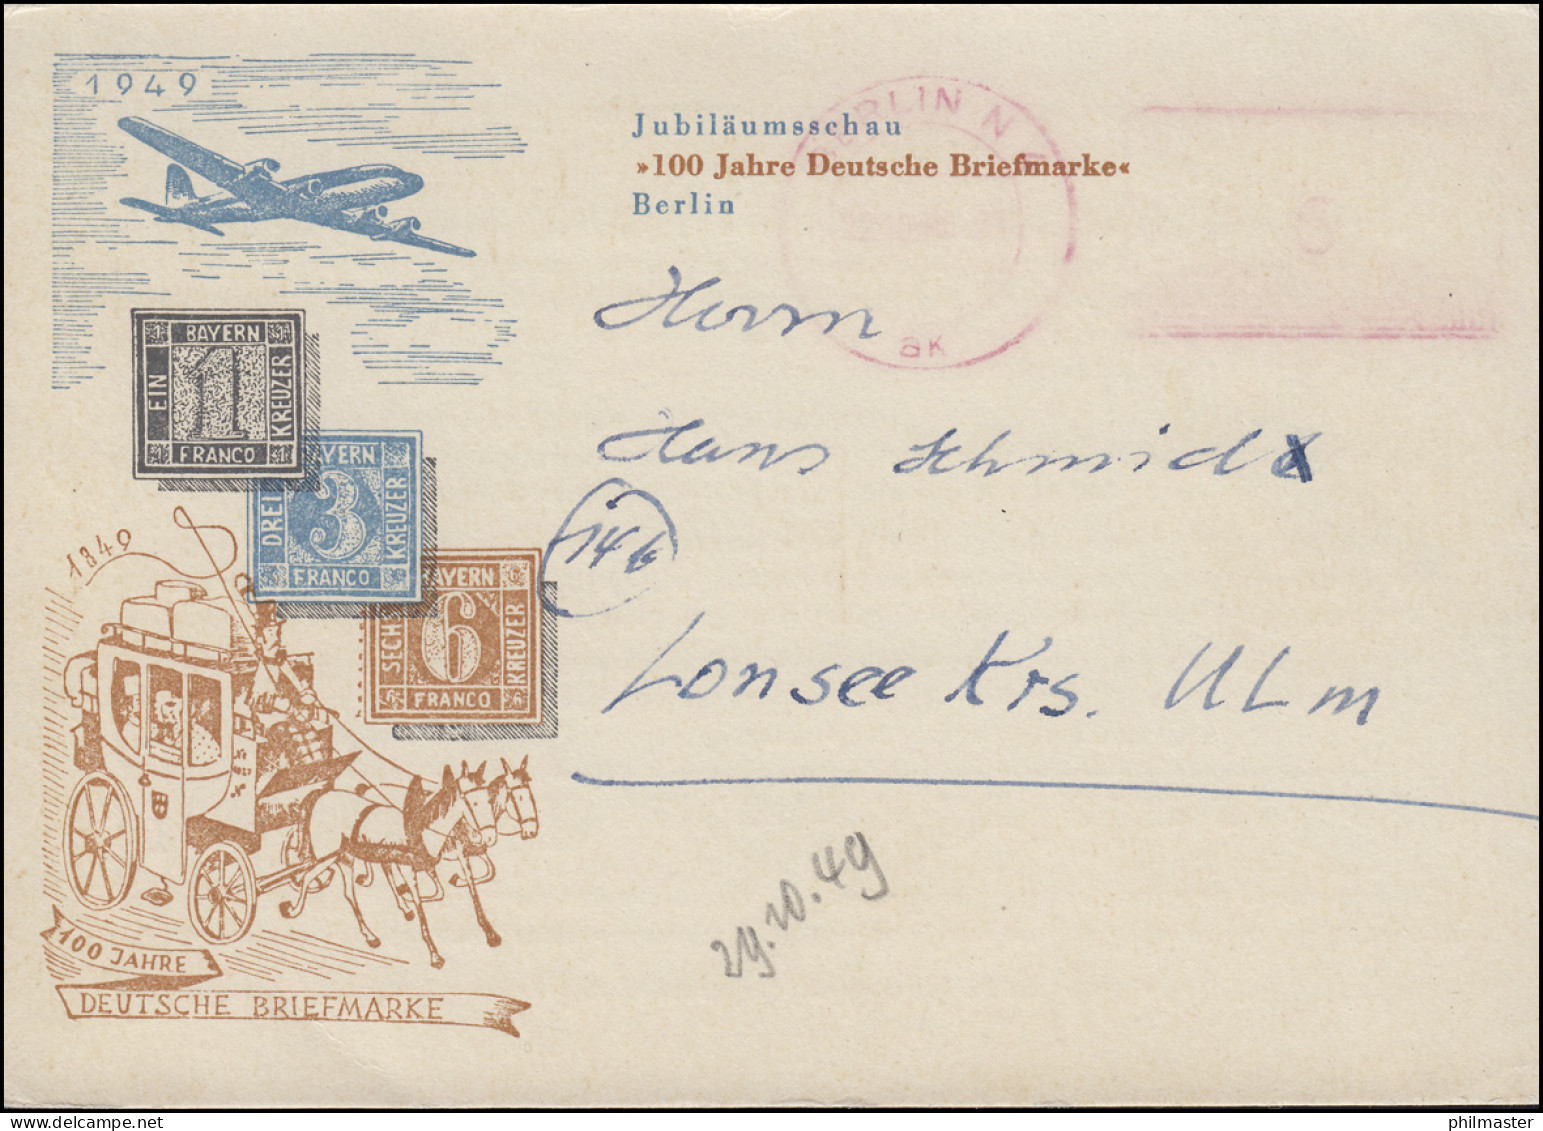 1949
Jubiläumsschau
»100 Jahre Deutsche Briefmarke«
Berlin
BERLIN N
6
ak
Herrn
Hans Schmidt
14b
Lonsee Krs. Ulm
29.10.49
BAYERN
EIN 1 KREUZER
FRANCO
BAYERN
DREI 3 KREUZER
FRANCO
BAYERN
SECHS 6 KREUZER
FRANCO
1849
100 JAHRE
DEUTSCHE BRIEFMARKE
philmaster